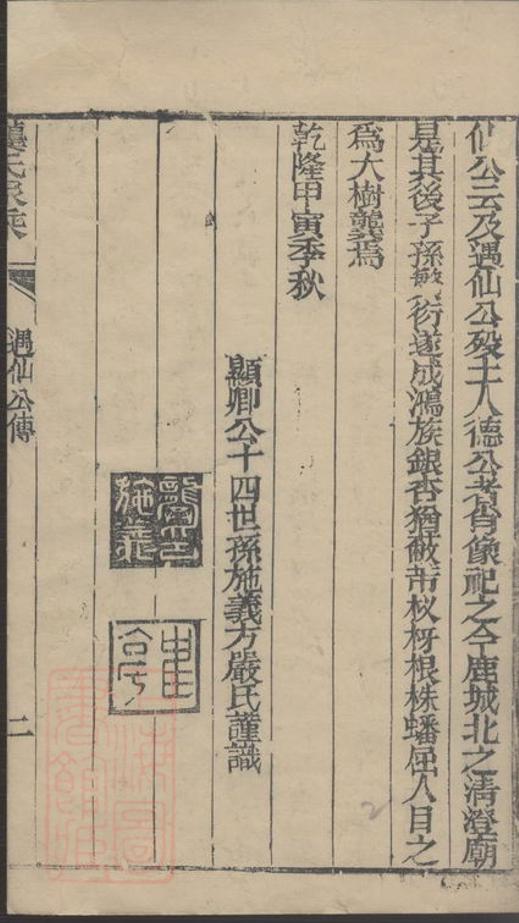 仙公云及遇仙公歿土人德公者肖像祀之今鹿城北之清澄廟
是其後子孫繁衍遂成鴻族銀杏猶蔽芾杈枒根株蟠屈人目之
為大樹龔焉
乾隆甲寅季秋
顯卿公十四世孫施義方嚴氏謹識
龔印施義
遇仙公傳
二